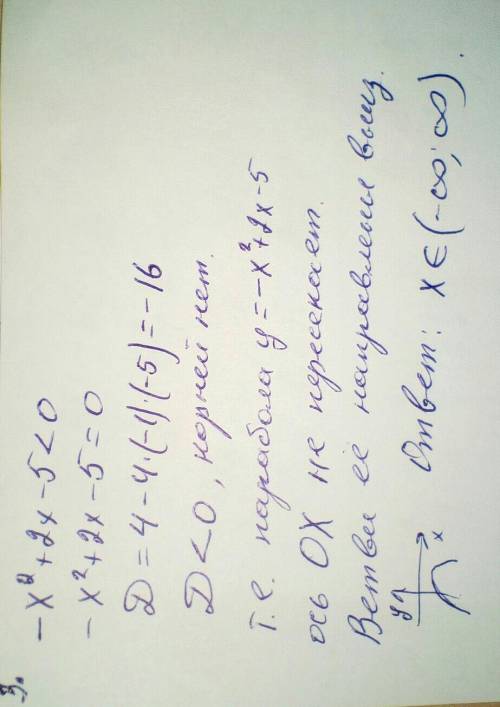 3.
-x²+2x-5<0
-x²+2x-5=0
D=4-4·(-1)·(-5)=-16
D<0, корней нет.
т.е. парабола y=-x²+2x-5
ось OX не пересекает.
Ветви её направлены вниз.
y x Ответ: x∈(-∞;∞).